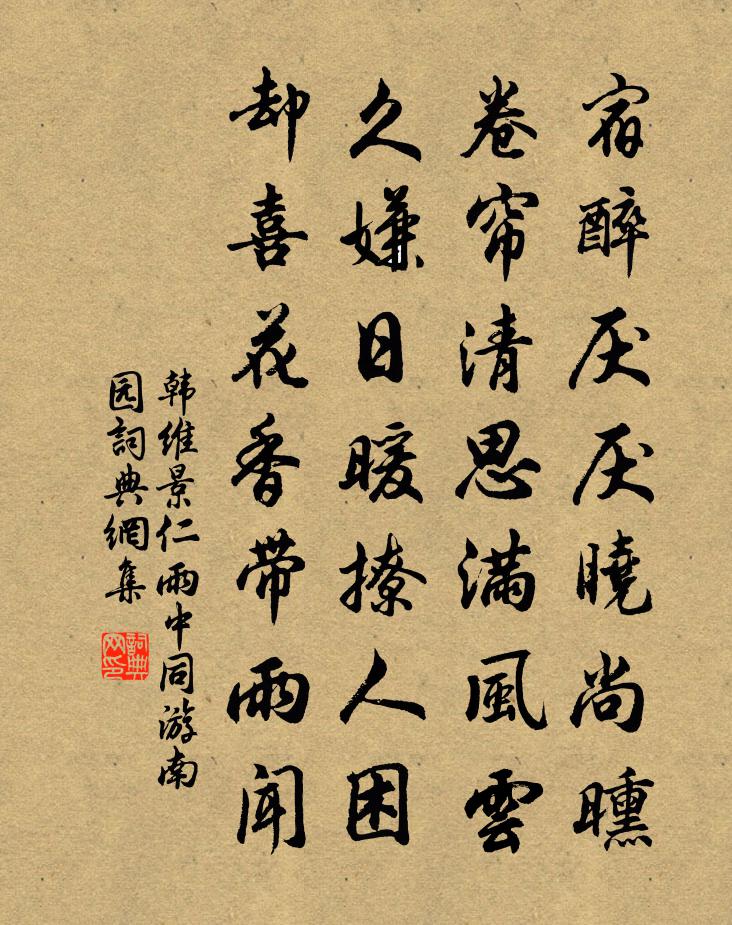 宿醉厌厌曉尚曛
卷帘清思滿風雲
久嫌日暖撩人困
却喜花香带雨闻
韩维景仁雨中同游南
园詞典網集
詞典网印